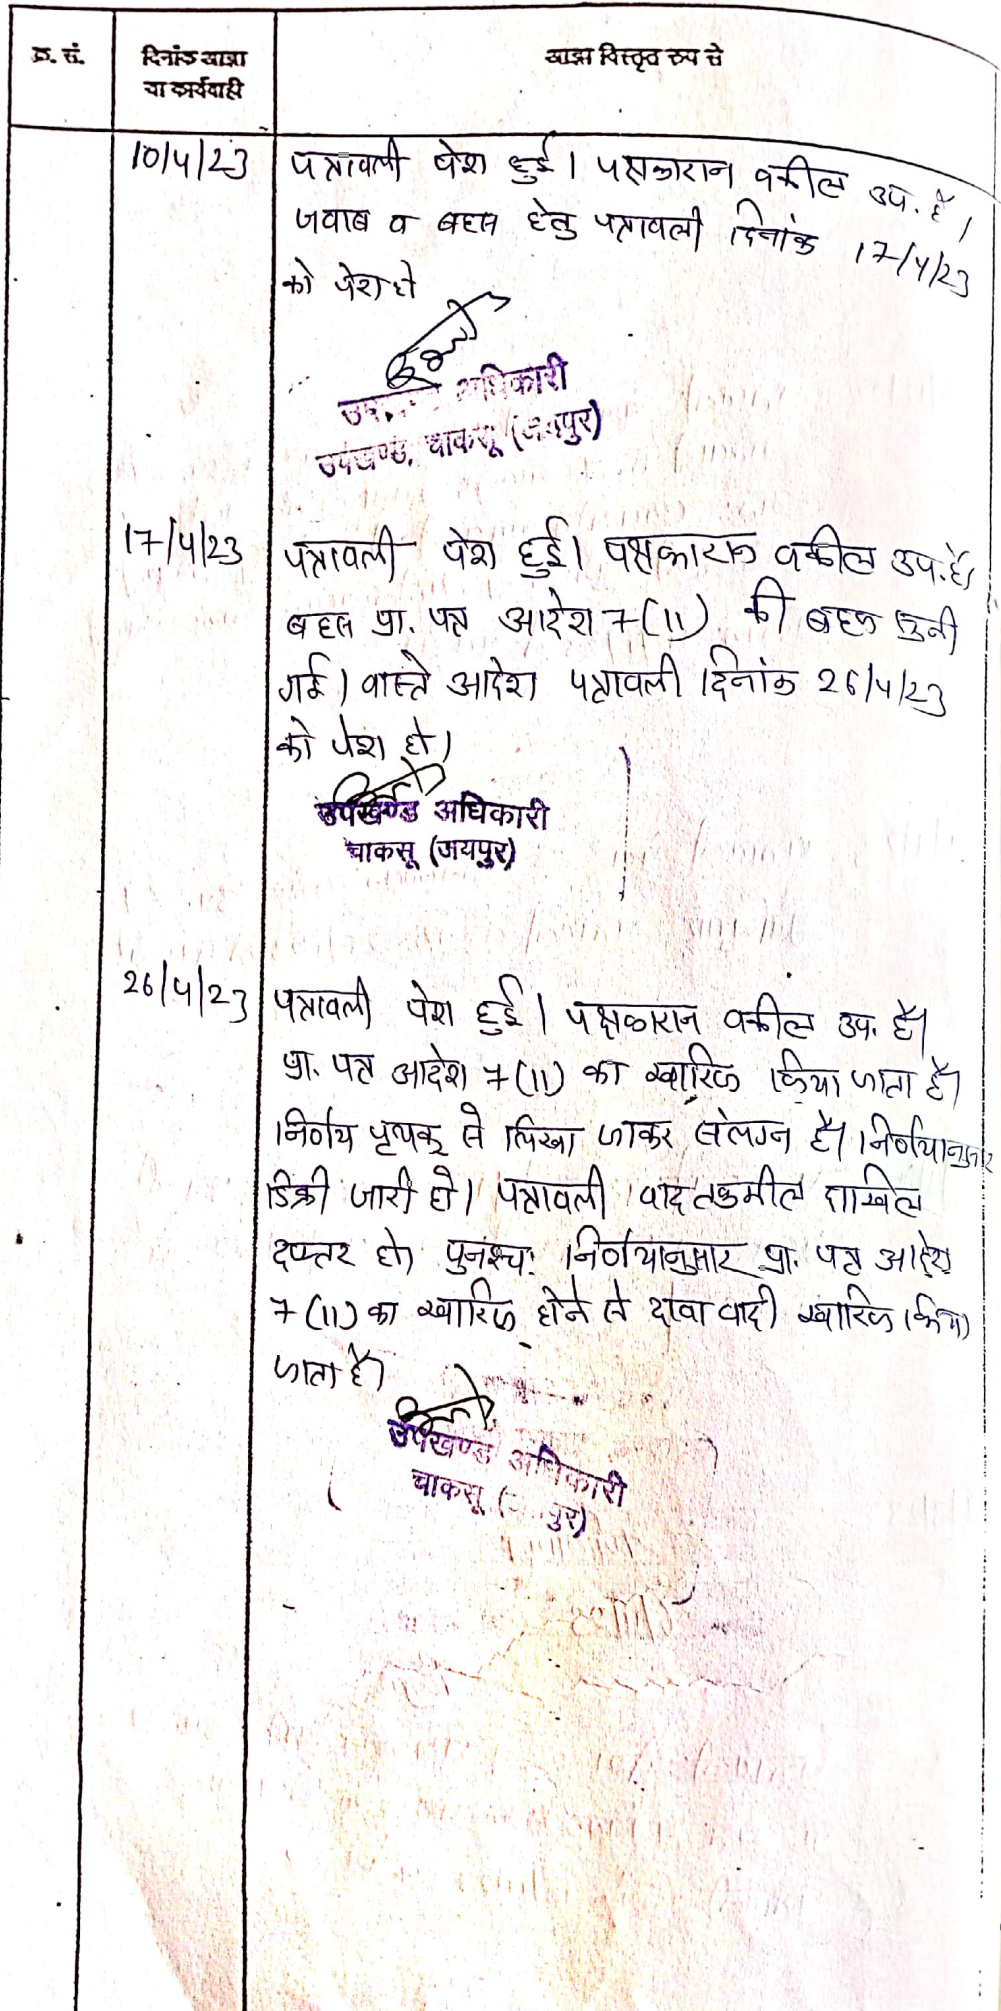 क्र. सं.
दिनांक आज्ञा
या कार्यवाही
आज्ञा विस्तृत रुप से
10/4/23
पत्रावली पेश हुई। पक्षकारान वकील उप. है।
जवाब व बहस हेतु पत्रावली दिनांक 17/4/23
को पेश हो
अधिकारी
उपखण्ड, चाकसू (जयपुर)
17/4/23
पत्रावली पेश हुई। पक्षकारान वकील उप. है।
बहस प्रा. पत्र आदेश 7(11) की बहस सुनी
गई। वास्ते आदेश पत्रावली दिनांक 26/4/23
को पेश हो।
उपखण्ड अधिकारी
चाकसू (जयपुर)
26/4/23
पत्रावली पेश हुई। पक्षकारान वकील उप. है।
प्रा. पत्र आदेश 7(11) का खारिज किया जाता है।
निर्णय पृथक से लिखा जाकर संलग्न है। निर्णयानुसार
डिक्री जारी हो। पत्रावली बाद तकमील दाखिल
दफ्तर हो। पुनश्चः निर्णयानुसार प्रा. पत्र आदेश
7(11) का खारिज होने से दावा वादी खारिज किया
जाता है।
उपखण्ड अधिकारी
चाकसू (जयपुर)